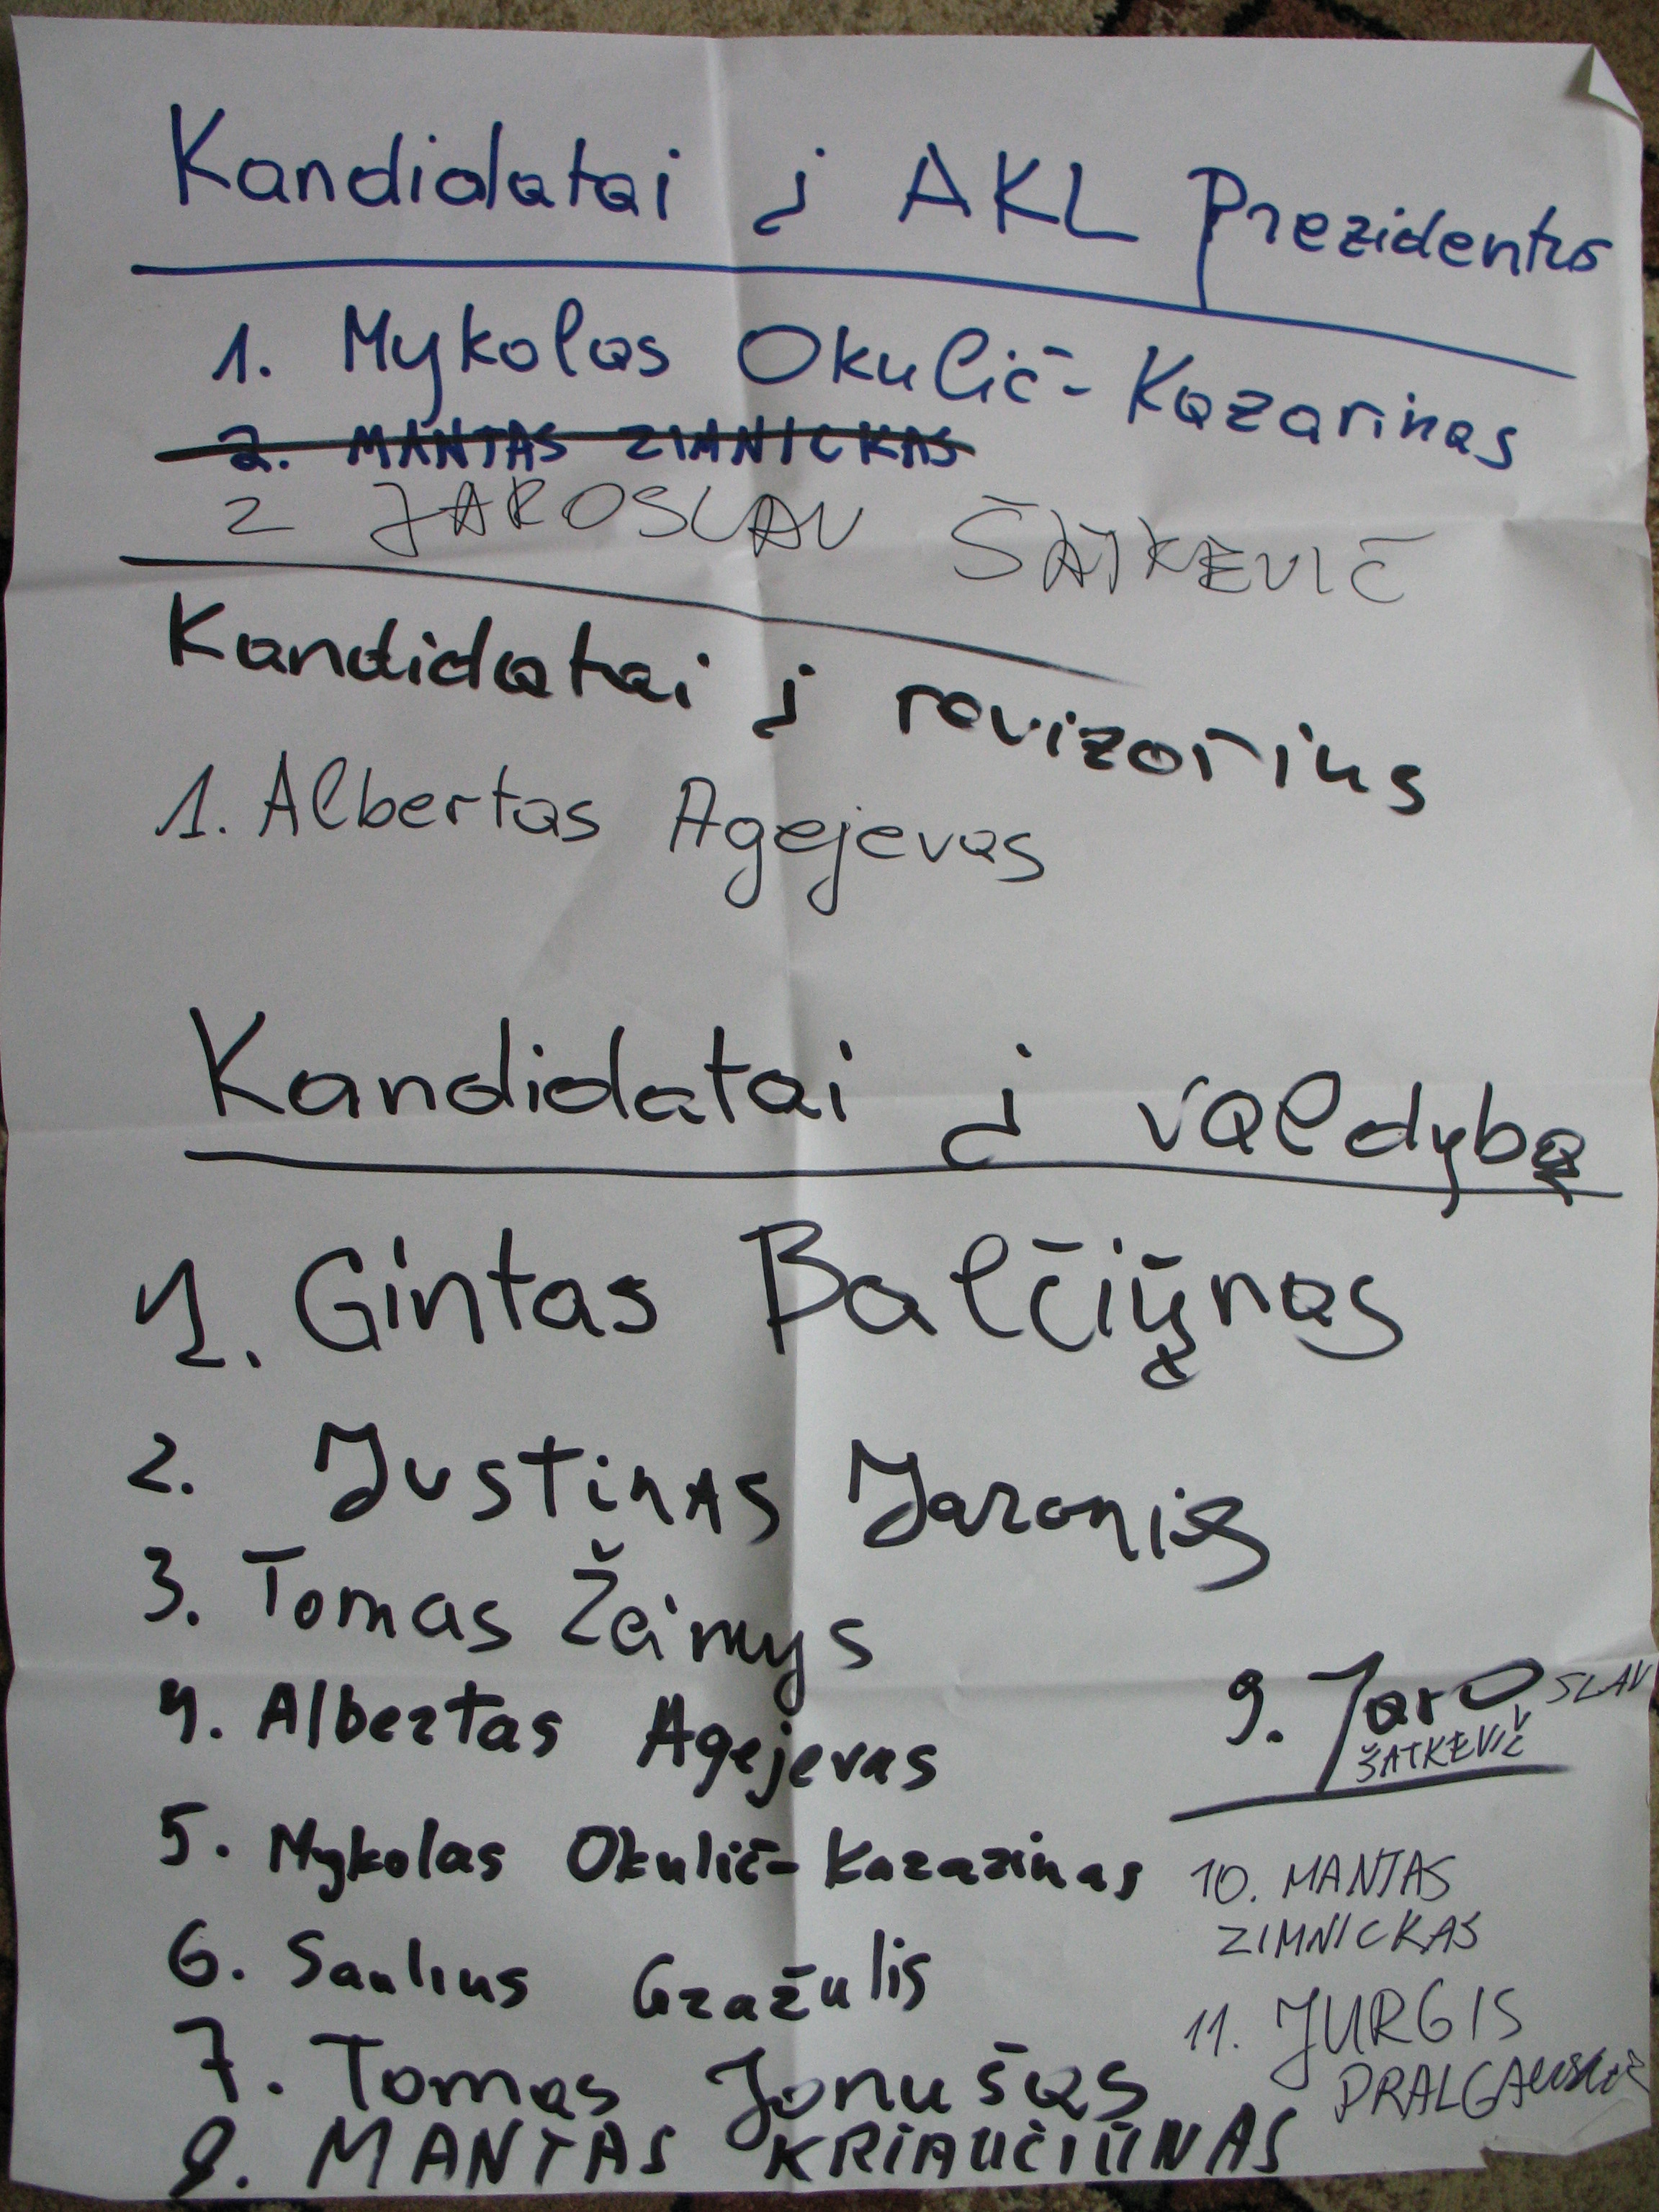 Kandidatai į AKL Prezidentus
1. Mykolas Okulič-Kazarinas
2. MANTAS ZIMNICKAS
2 JAROSLAV ŠATKEVIČ
Kandidatai į revizorius
1. Albertas Agejevas
Kandidatai į valdybą
1. Gintas Balčiūnas
2. Justinas Jaronis
3. Tomas Žeimys
4. Albertas Agejevas
5. Mykolas Okulič-Kazarinas
6. Saulius Gražulis
7. Tomas Jonušas
8. MANTAS KRIAUČIŪNAS
9. JaroSLAV
ŠATKEVIČ
10. MANTAS
ZIMNICKAS
11. JURGIS